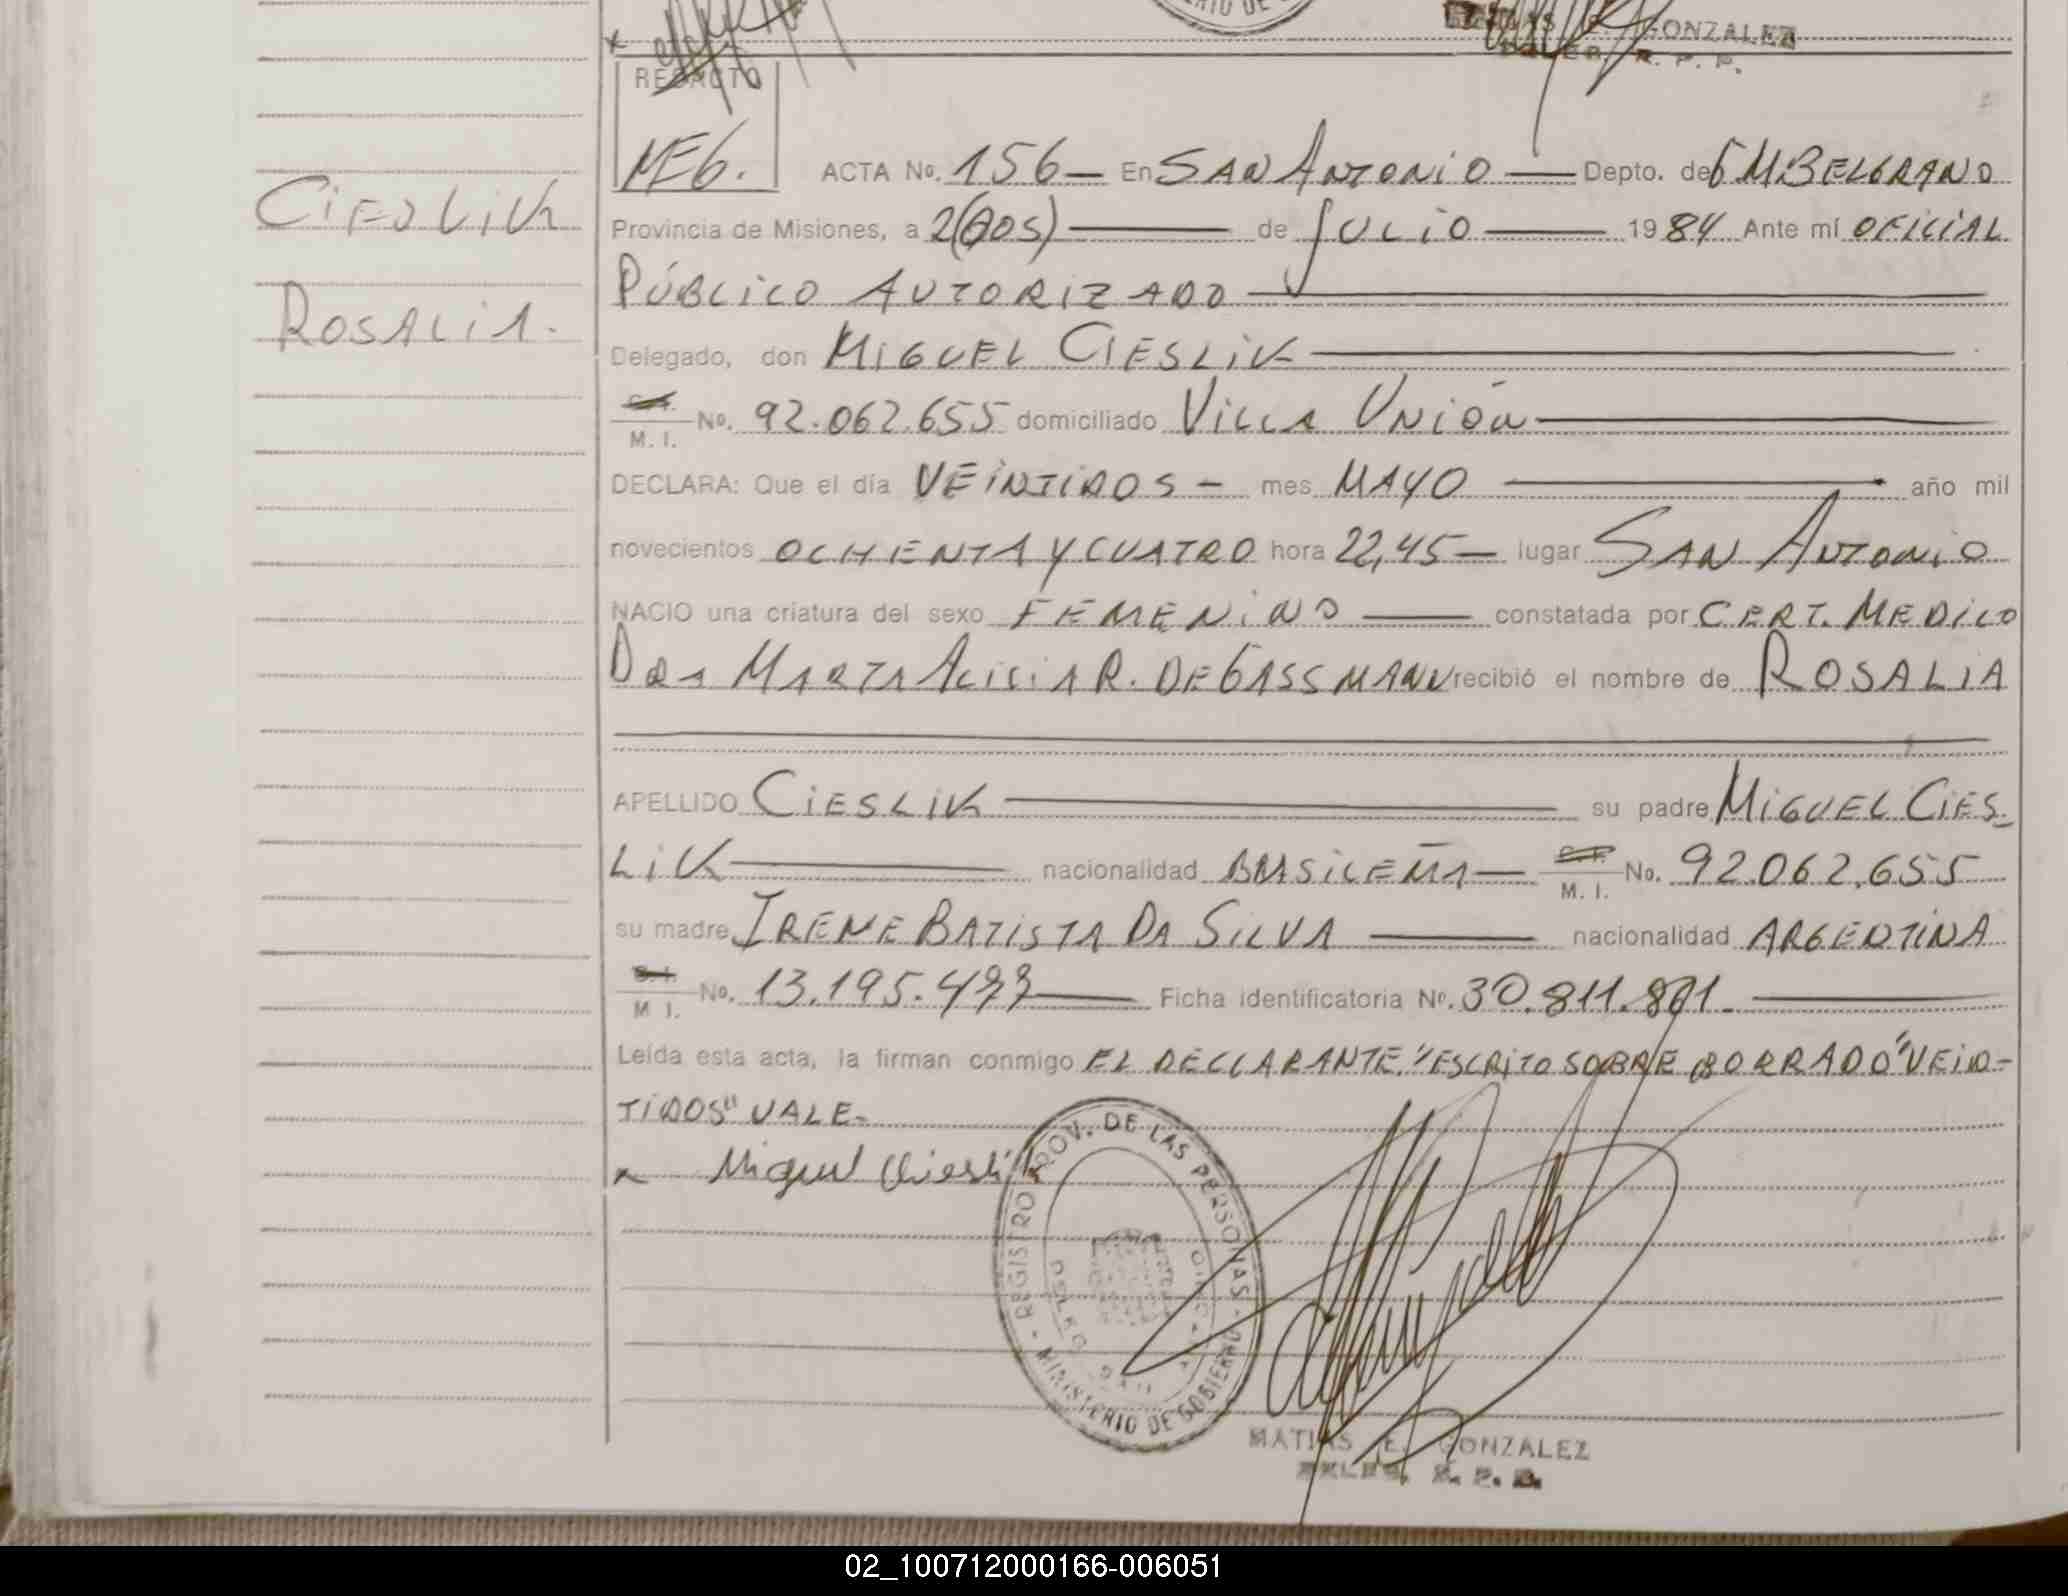 GONZALEZ
R. P. P.
REDACTO
MEG.
ACTA No. 156 — En SAN ANTONIO — Depto. de G M BELGRANO
CIESLIK
Provincia de Misiones, a 2(DOS) — de JULIO — 1984 Ante mí OFICIAL
PÚBLICO AUTORIZADO —
ROSALIA.
Delegado, don MIGUEL CIESLIK —
C.I. M. I. No. 92.062.655 domiciliado VILLA UNIÓN —
DECLARA: Que el día VEINTIDOS - mes MAYO — año mil
novecientos OCHENTA Y CUATRO hora 22,45 — lugar SAN ANTONIO
NACIO una criatura del sexo FEMENINO — constatada por CERT. MEDICO
DRA MARTA ALICIA R. DE GASSMANN recibió el nombre de ROSALIA
APELLIDO CIESLIK — su padre MIGUEL CIES-
LIK — nacionalidad BRASILEÑA — C.I. M. I. No. 92.062.655
su madre IRENE BATISTA DA SILVA — nacionalidad ARGENTINA
C.I. M I. No. 13.195.499 — Ficha identificatoria Nº. 30.811.801. —
Leída esta acta, la firman conmigo EL DECLARANTE. "ESCRITO SOBRE BORRADO" VEIN-
TIDOS" VALE-
x Miguel Cieslik
- REGISTRO PROV. DE LAS PERSONAS - MINISTERIO DE GOBIERNO
MATIAS E. GONZALEZ
02_100712000166-006051